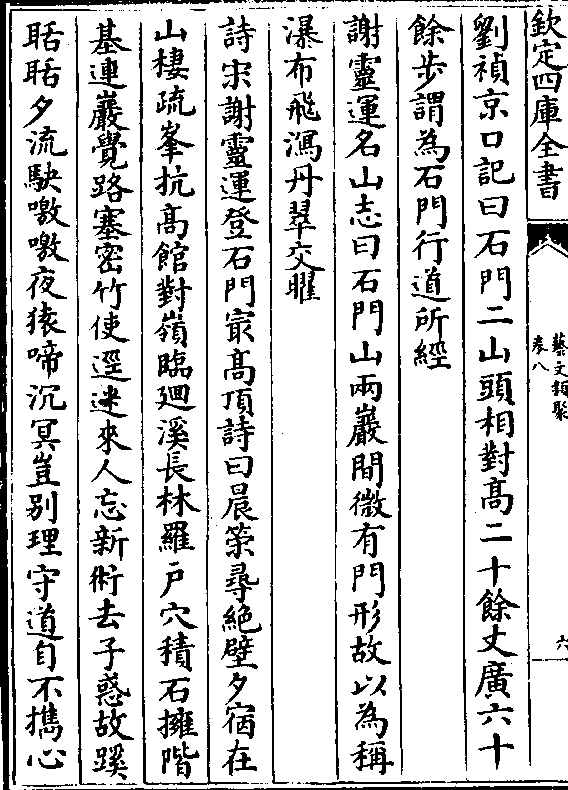 欽定四庫全書
藝文類聚
卷八
六
劉禎京口記曰石門二山頭相對高二十餘丈廣六十
餘步謂為石門行道所經
謝靈運名山志曰石門山兩巖間微有門形故以為稱
瀑布飛瀉丹翠交曜
詩宋謝靈運登石門最高頂詩曰晨策尋絶壁夕宿在
山棲疏峯抗高館對嶺臨廻溪長林羅戶穴積石擁階
基連巖覺路塞密竹使逕迷來人忘新術去子惑故蹊
聒聒夕流駃噭噭夜猿啼沉冥豈别理守道自不擕心